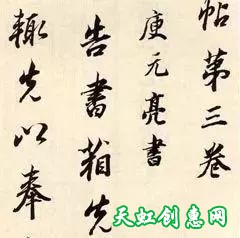 帖第三卷
庾元亮書
告書箱先
輙先以奉
天虹创惠网